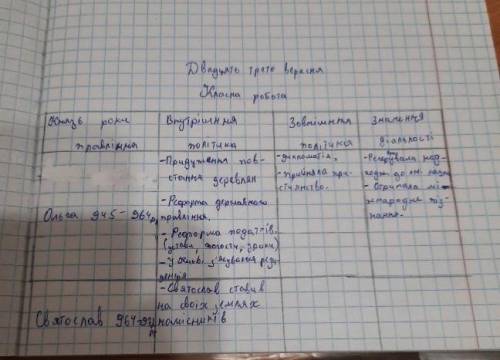 Двадцять третє вересня
Класна робота
Князь роки правління
Внутрішня політика
Зовнішння політика
Значення діяльності
Ольга 945-964рр
- Придушення пов-
стання деревлян
- Реформа державного
правління.
- Реформа податків.
(устави, погости, уроки)
- У Києві з'явився рези
денція
- дипломатія.
- прийняла хри-
стиянство.
надход до кн. казни
- Отримала мі-
жнародне піз-
нання.
Святослав 964-972рр
- Святослав ставив
на своїх землях
намісників